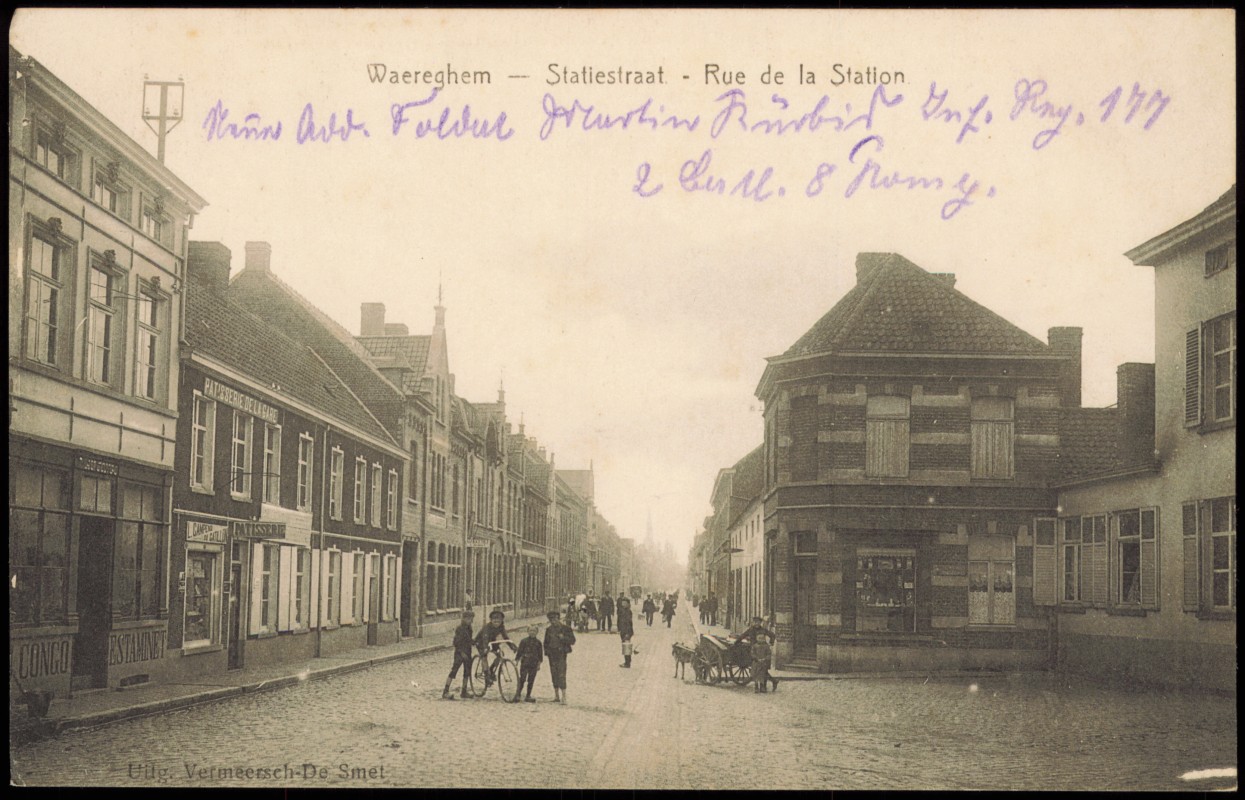 Waereghem — Statiestraat. - Rue de la Station.
Neue Add. Soldat Martin Kürbis Inf. Reg. 177
2 Batl. 8 Komp.
PATISSERIE DE LA GARE
PATISSERIE
CONGO
ESTAMINET
Uitg. Vermeersch-De Smet